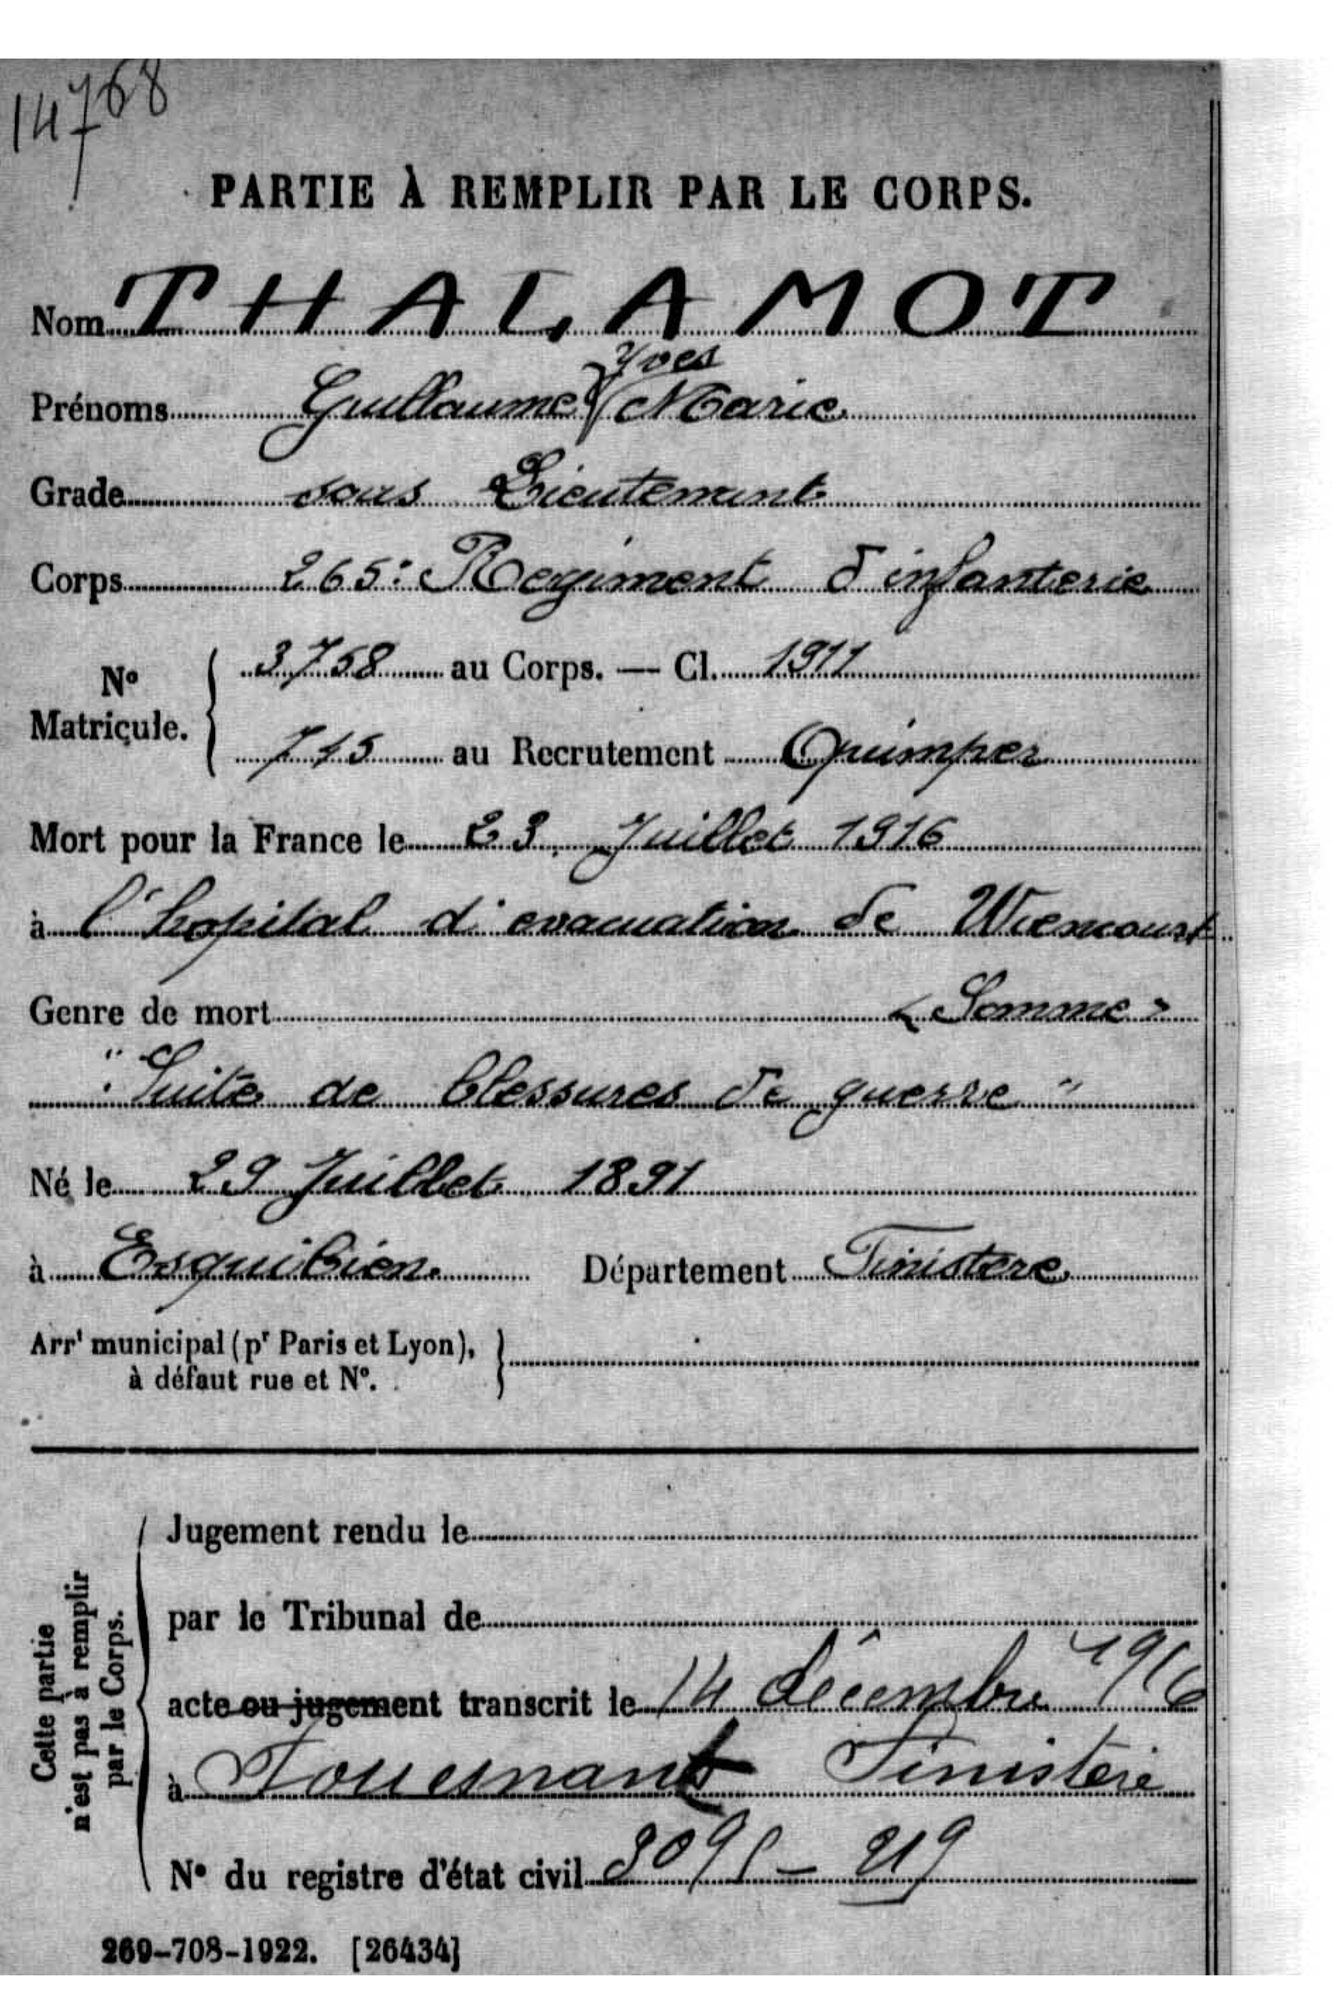 14768
PARTIE À REMPLIR PAR LE CORPS.
Nom THALAMOT
Yves
Prénoms Guillaume Marie
Grade sous Lieutenant
Corps 265e Regiment d'infanterie
N° Matricule. 3758 au Corps. — Cl. 1911
745 au Recrutement Quimper
Mort pour la France le 23 Juillet 1916
à l'hopital d'evacuation de Wiencourt
Genre de mort « Somme »
" Suite de blessures de guerre "
Né le 29 Juillet 1891
à Esquibien Département Finistere
Arrt municipal (pr Paris et Lyon),
à défaut rue et N°.
Cette partie
n'est pas à remplir
par le Corps.
Jugement rendu le
par le Tribunal de
acte ou jugement transcrit le 14 décembre 1916
à Fouesnant Finistère
N° du registre d'état civil
269-708-1922. [26434]